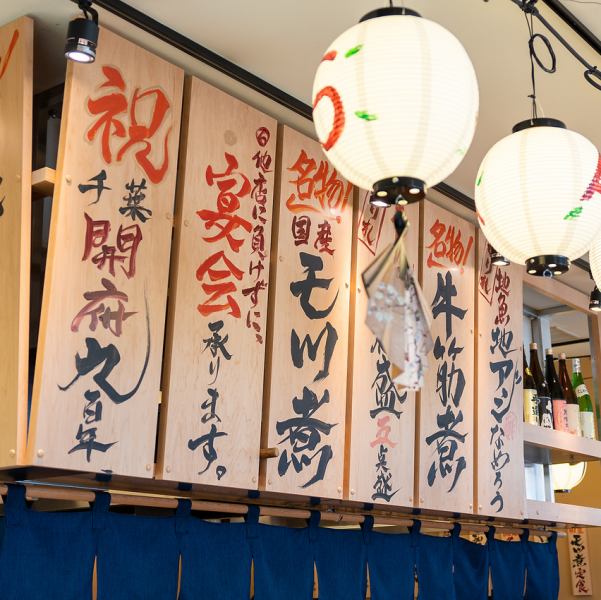 祝
千葉
開府九百年
他店に負けずに、
宴会
承ります。
名物!
国産
モツ煮
盛
五点盛
名物!
牛筋煮
地魚
地アジなめろう
モツ煮定食